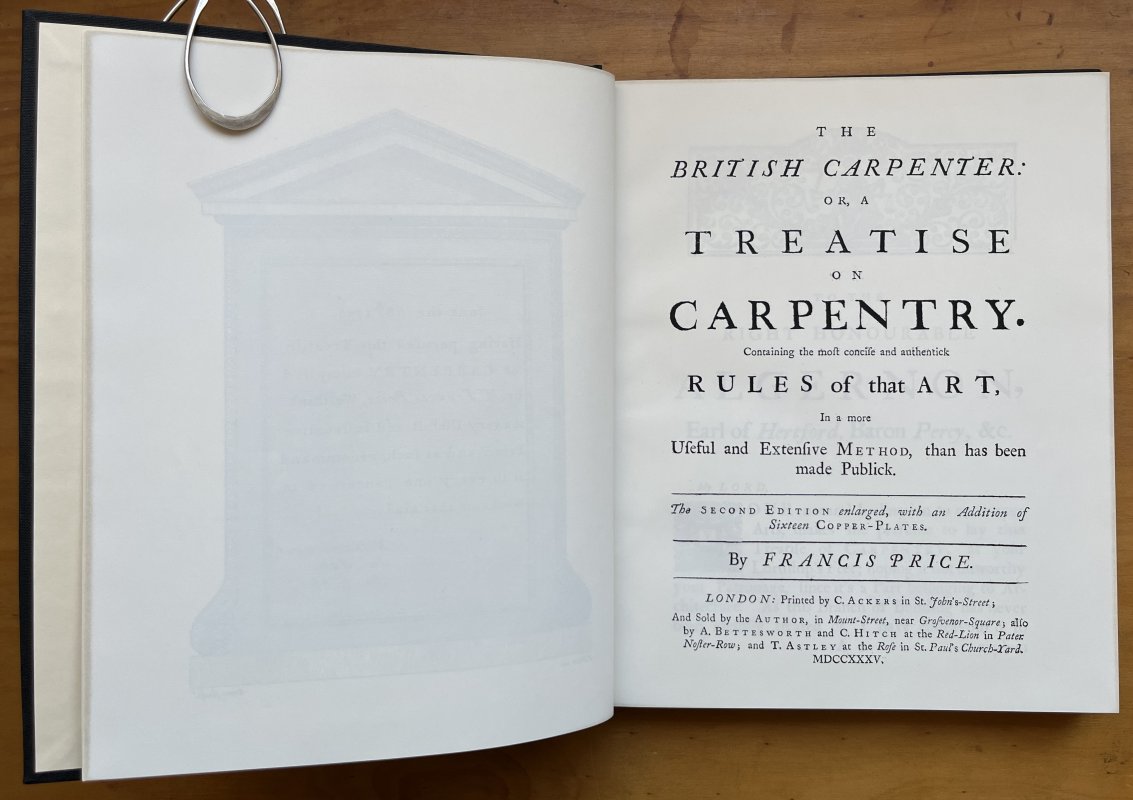 THE
BRITISH CARPENTER:
OR, A
TREATISE
ON
CARPENTRY.
Containing the moſt conciſe and authentick
RULES of that ART,
In a more
Uſeful and Extenſive METHOD, than has been
made Publick.
The SECOND EDITION enlarged, with an Addition of
Sixteen COPPER-PLATES.
By FRANCIS PRICE.
LONDON: Printed by C. ACKERS in St. John's-Street;
And Sold by the AUTHOR, in Mount-Street, near Groſvenor-Square; alſo
by A. BETTESWORTH and C. HITCH at the Red-Lion in Pater
Noſter-Row; and T. ASTLEY at the Roſe in St. Paul's Church-Yard.
MDCCXXXV.